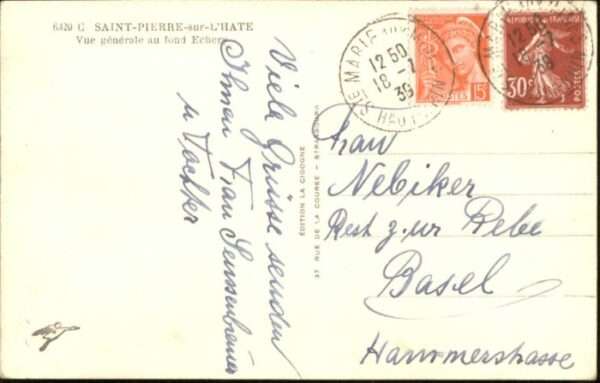 6329 C SAINT-PIERRE-sur-L'HATE
Vue générale au fond Echery
Viele Grüsse senden
Ihnen Frau
u Tochter
ÉDITION LA CIGOGNE
37, RUE DE LA COURSE - STRASBOURG
STE MARIE AUX MINES
12 50
18 - 1
39
HAUT RHIN
POSTES 15
RF
30c
POSTES
12 50
39
Frau
Nebiker
Rest z.ur Rebe
Basel
Hammerstrasse